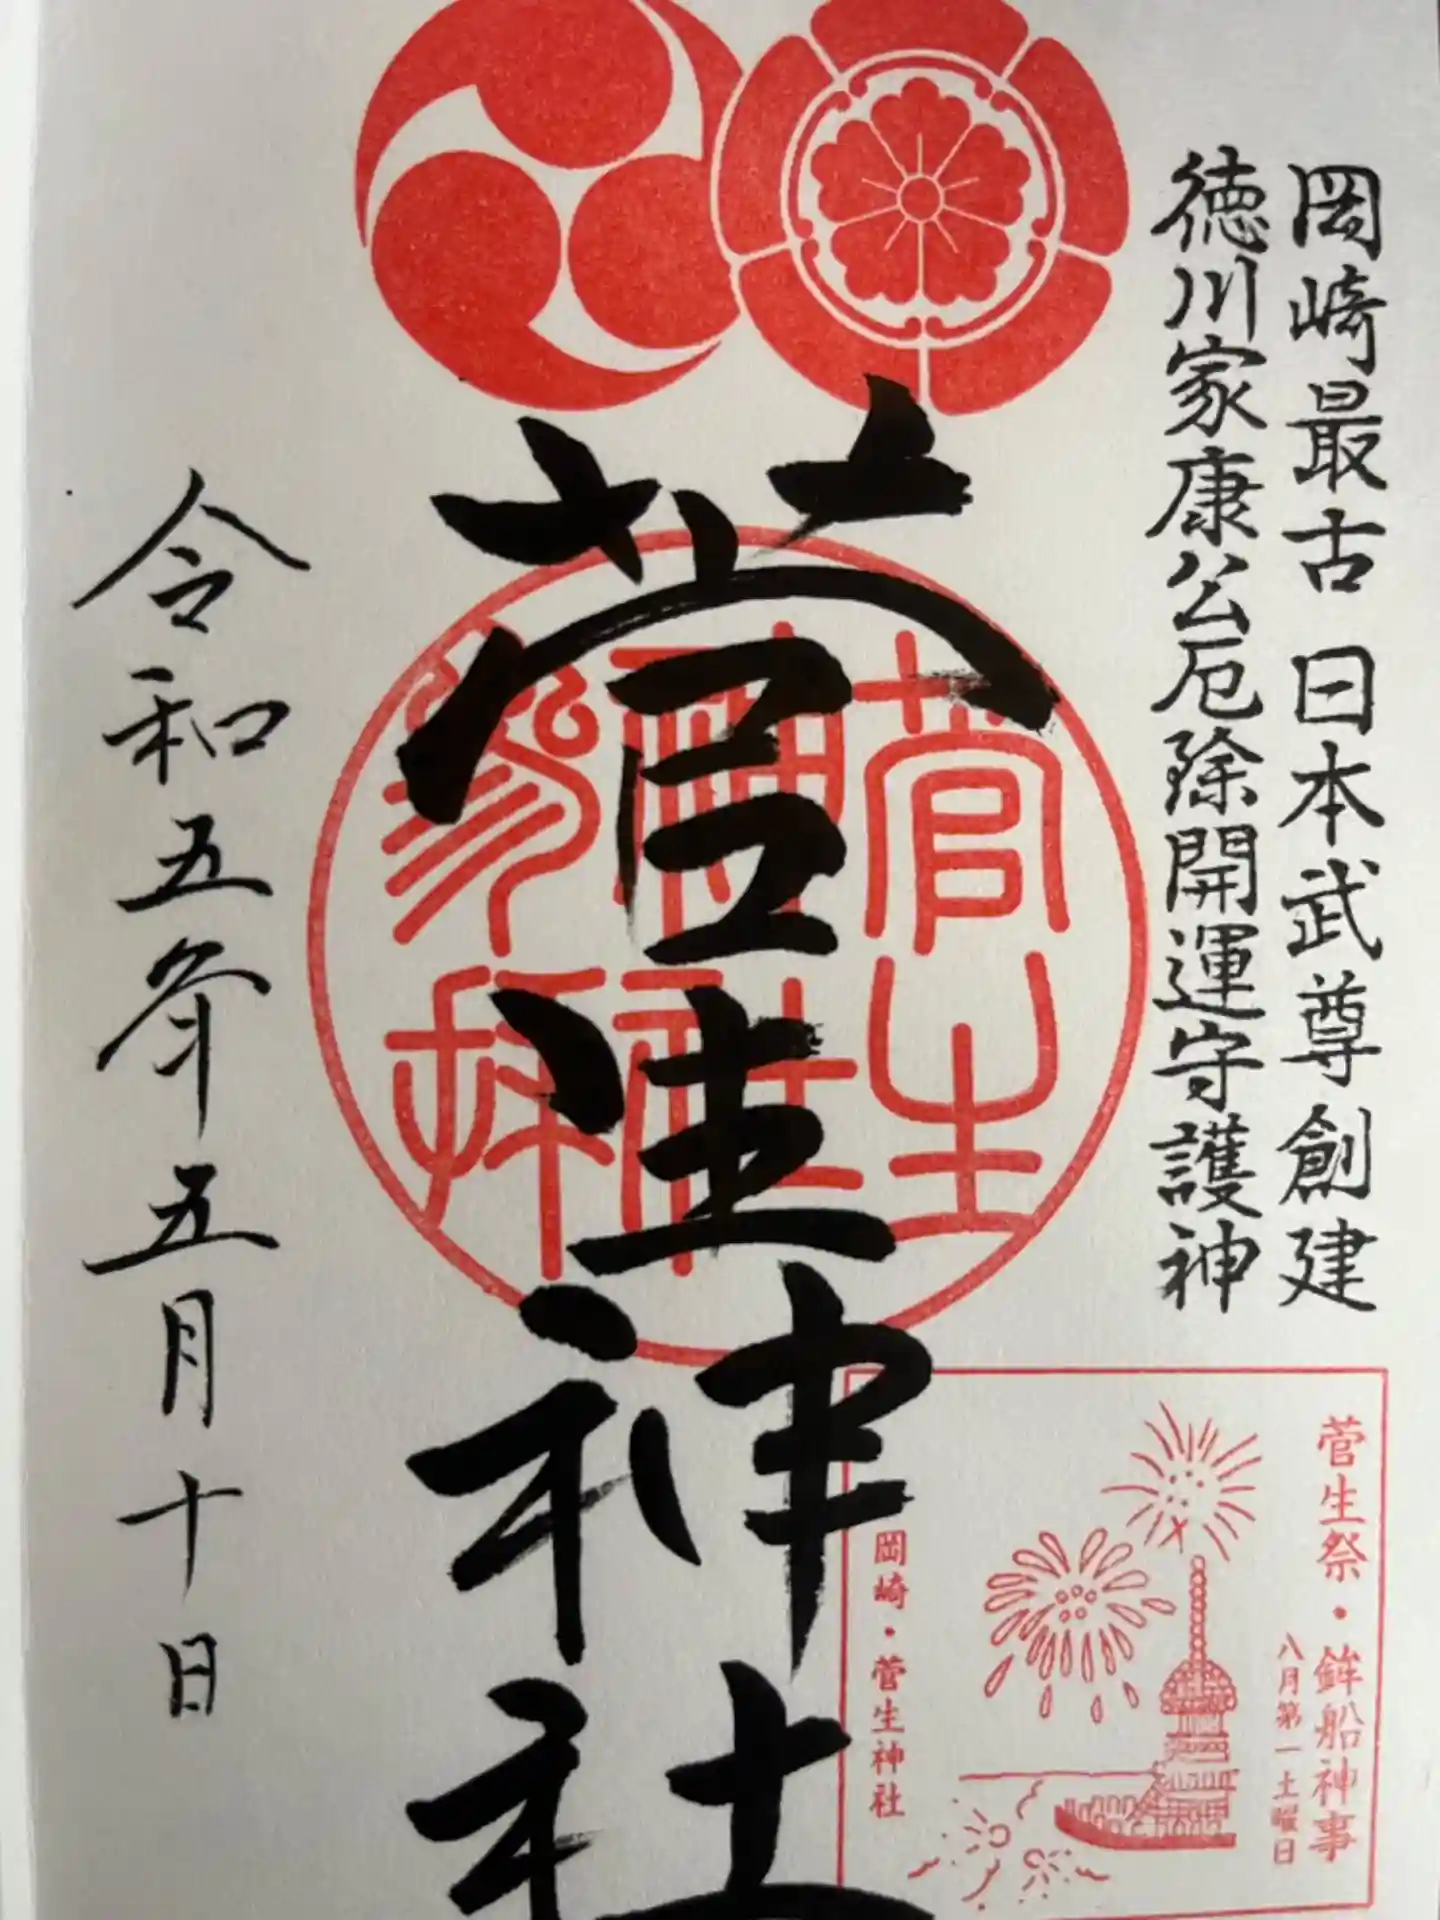 岡崎最古 日本武尊創建
徳川家康公厄除開運守護神
菅生神社
菅生
神社
参拝
令和五年五月十日
菅生祭・鉾船神事
八月第一土曜日
岡崎・菅生神社